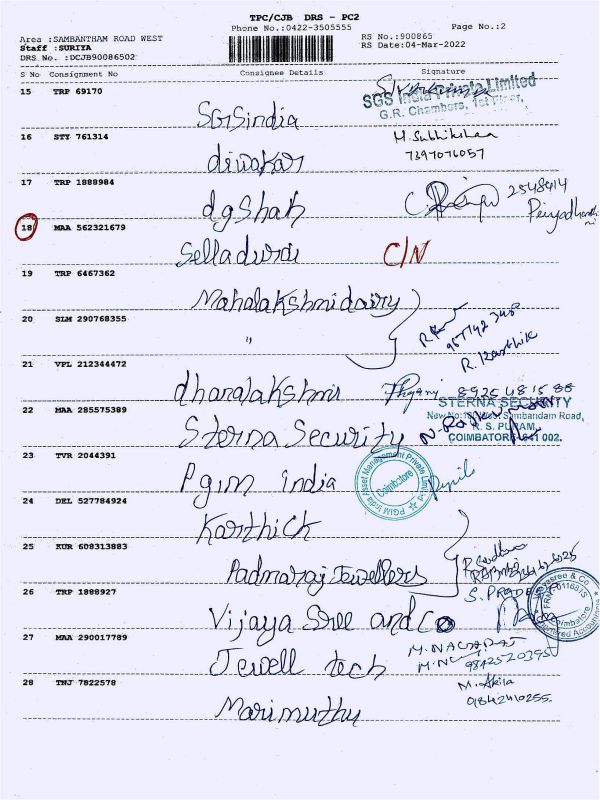 TPC/CJB DRS - PC2
Phone No.:0422-3505555
Page No.:2
Area :SAMBANTHAM ROAD WEST
RS No.:900865
Staff :SURIYA
RS Date:04-Mar-2022
DRS No. :DCJB90086502
S No Consignment No Consignee Details Signature
15 TRP 69170
SGS India Private Limited
G.R. Chambers, 1st Floor,
SGSindia
16 STY 761314
M. Subhikshaa
7397076057
diwakar
17 TRP 1888984
2548414
dgshah
18 MAA 562321679
Selladurai C/N
19 TRP 6467362
Mahalakshmidairy
20 SLM 290768355
"
R. Karthik
21 VPL 212344472
dhanalakshmi
22 MAA 285575389
STERNA SECURITY
Sambandam Road,
R. S. PURAM,
COIMBATORE-641 002.
Sterna Security
23 TVR 2044391
PGIM India Asset Management Private Limited
Coimbatore
Pgim india
24 DEL 527784924
Karthick
25 KUR 608313883
Padmaraj Jewellers
26 TRP 1888927
Vijaya Sree and Co
27 MAA 290017789
M. NAGARAJ
Jewell tech
28 TNJ 7822578
M. Akila
9842410255.
Marimuthu